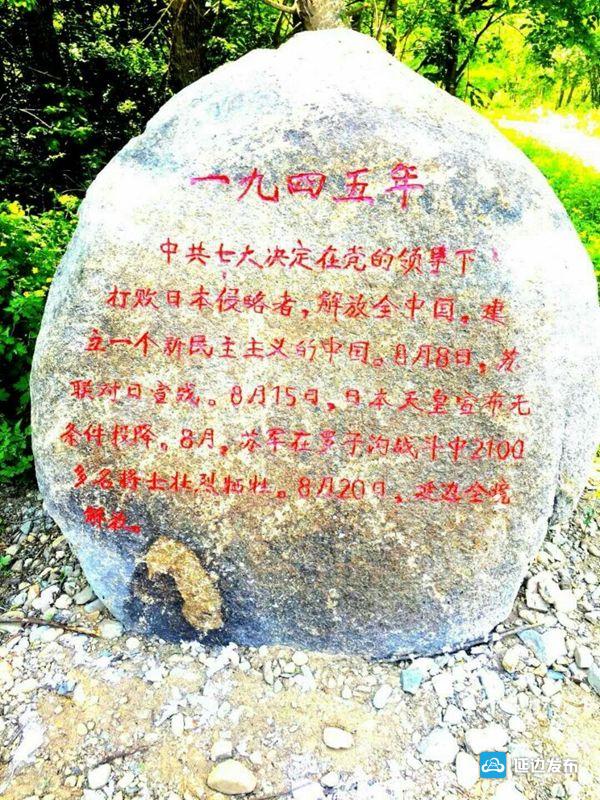 一九四五年
中共七大决定在党的领导下
打败日本侵略者，解放全中国，建
立一个新民主主义的中国。8月8日，苏
联对日宣战。8月15日，日本天皇宣布无
条件投降。8月，苏军在罗子沟战斗中2100
多名将士壮烈牺牲。8月20日，延边全境
解放。
延边发布